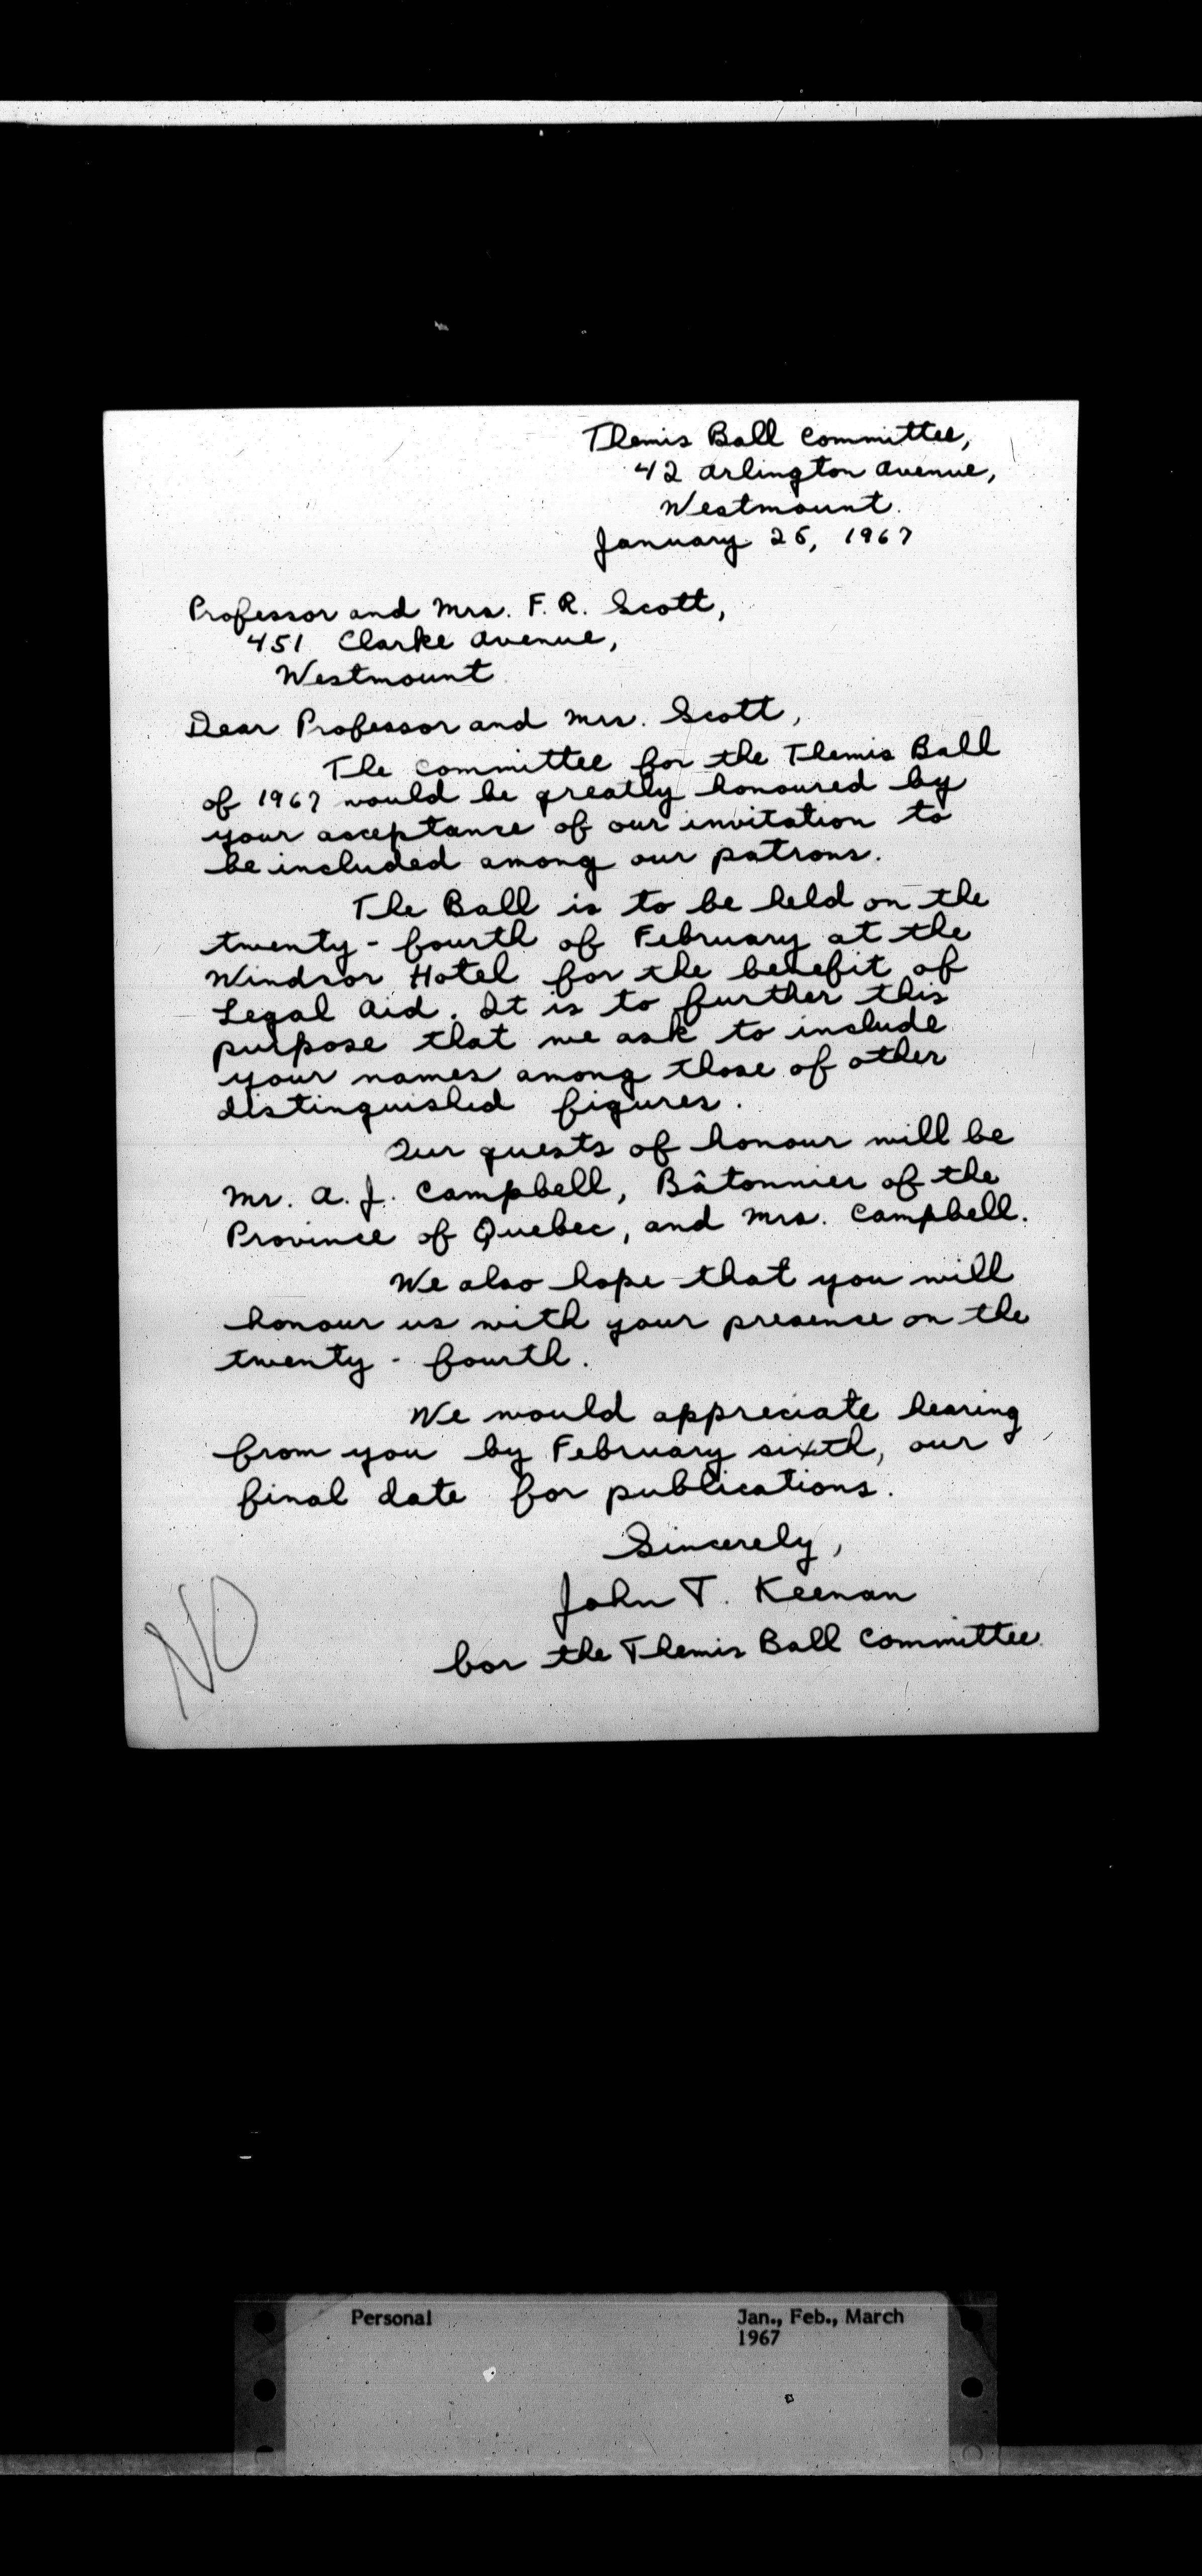 Themis Ball Committee,
42 Arlington Avenue,
Westmount.
January 26, 1967
Professor and Mrs. F. R. Scott,
451 Clarke Avenue,
Westmount
Dear Professor and Mrs. Scott,
The committee for the Themis Ball
of 1967 would be greatly honoured by
your acceptance of our invitation to
be included among our patrons.
The Ball is to be held on the
twenty-fourth of February at the
Windsor Hotel for the benefit of
Legal Aid. It is to further this
purpose that we ask to include
your names among those of other
distinguished figures.
Our guests of honour will be
Mr. A. J. Campbell, Bâtonnier of the
Province of Quebec, and Mrs. Campbell.
We also hope that you will
honour us with your presence on the
twenty-fourth.
We would appreciate hearing
from you by February sixth, our
final date for publications.
Sincerely,
John T. Keenan
for the Themis Ball Committee.
NO
Personal Jan., Feb., March
1967